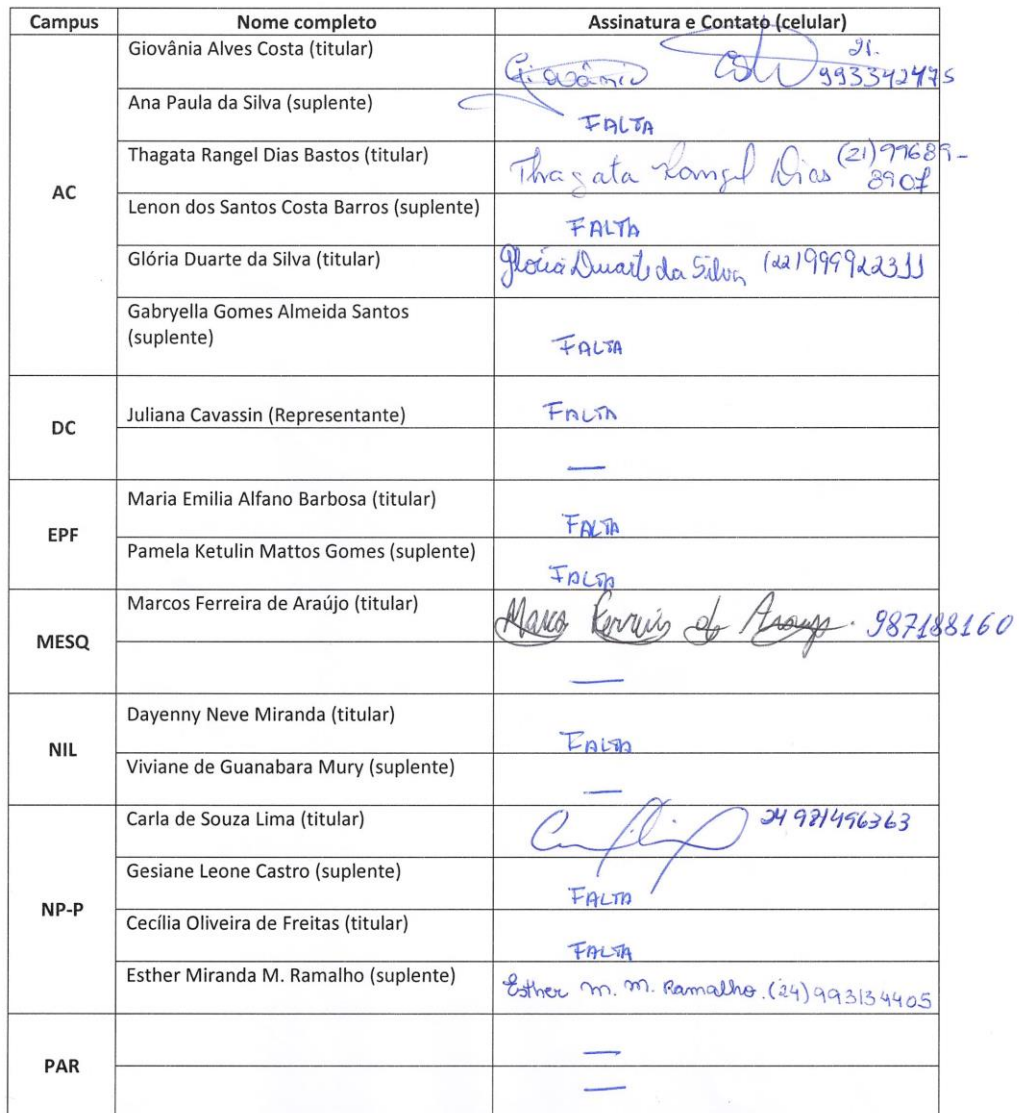 Campus Nome completo Assinatura e Contato (celular)
AC
Giovânia Alves Costa (titular)
Giovânia 21.
993342475
Ana Paula da Silva (suplente)
FALTA
Thagata Rangel Dias Bastos (titular)
Thagata Rangel Dias (21)99689-
8907
Lenon dos Santos Costa Barros (suplente)
FALTA
Glória Duarte da Silva (titular)
Glória Duarte da Silva (22)999922311
Gabryella Gomes Almeida Santos
(suplente)
FALTA
DC
Juliana Cavassin (Representante)
FALTA
—
EPF
Maria Emilia Alfano Barbosa (titular)
FALTA
Pamela Ketulin Mattos Gomes (suplente)
FALTA
MESQ
Marcos Ferreira de Araújo (titular)
Marcos Ferreira de Araujo. 987188160
—
NIL
Dayenny Neve Miranda (titular)
FALTA
Viviane de Guanabara Mury (suplente)
—
NP-P
Carla de Souza Lima (titular)
24 981496363
Gesiane Leone Castro (suplente)
FALTA
Cecília Oliveira de Freitas (titular)
FALTA
Esther Miranda M. Ramalho (suplente)
Esther M. M. Ramalho. (24) 993134405
PAR
—
—